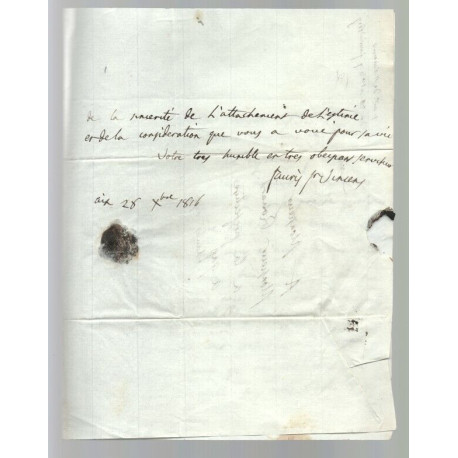 de la sincerité de l'attachement de l'estime
et de la consideration que vous a voué pour la vie
votre tres humble et tres obeissant serviteur
fauris st vincens
aix 28 Xbre 1816